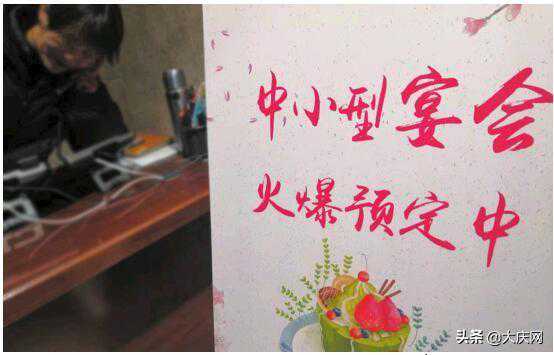 中小型宴会
火爆预定中
头条 @大庆网